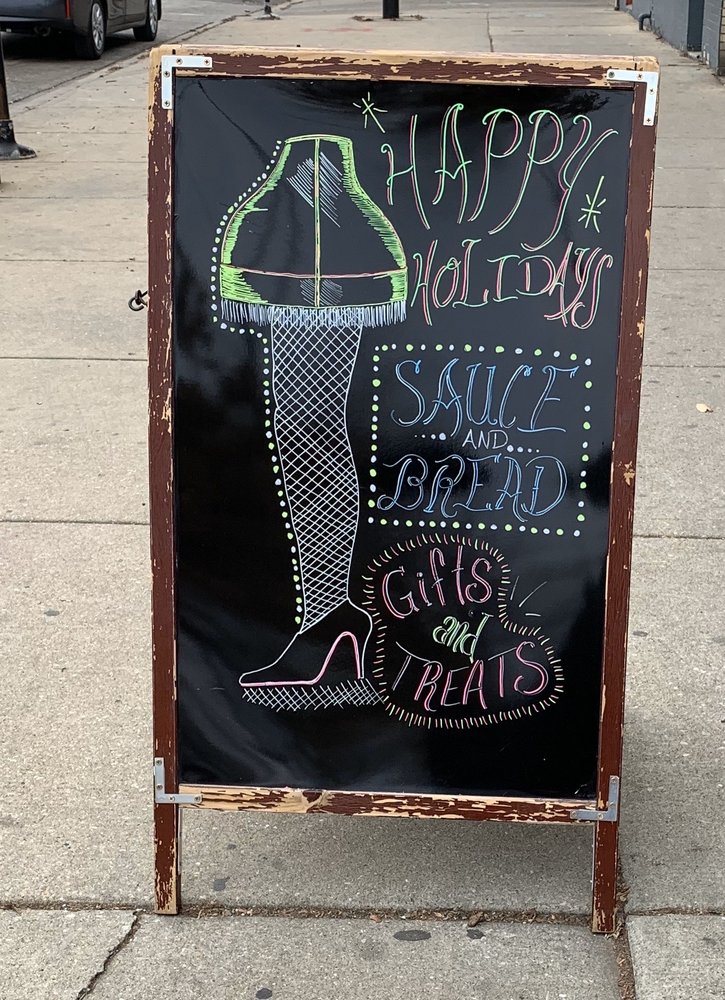 HAPPY
HOLIDAYS
SAUCE
AND
BREAD
Gifts
and
TREATS